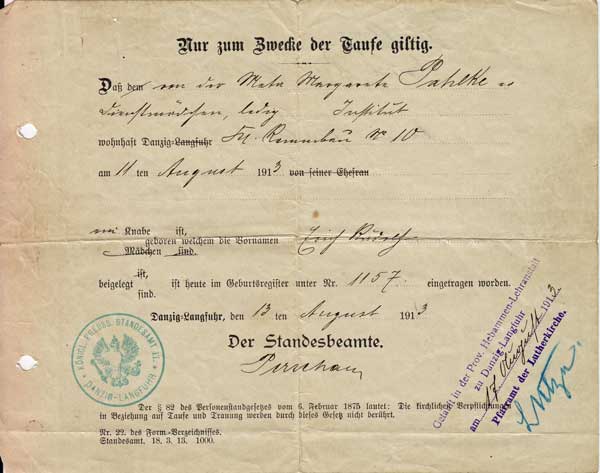 Nur zum Zwecke der Taufe giltig.
Daß dem von der Meta Margarete Pahlke
Dienstmädchen, ledig Institut
wohnhaft Danzig-Langfuhr No 10
am 11 ten August 1913 von seiner Ehefrau
ein Knabe ist,
geboren welchem die Vornamen Erich
Mädchen sind.
beigelegt ist, ist heute im Geburtsregister unter Nr. 1157 eingetragen worden.
sind.
Danzig-Langfuhr, den 13 ten August 1913
Der Standesbeamte.
KÖNIGL. PREUSS. STANDESAMT XI.
DANZIG-LANGFUHR
Getauft in der Prov. Hebammen-Lehranstalt
zu Danzig-Langfuhr
am 17 August 1913.
Pfarramt der Lutherkirche.
Der § 82 des Personenstandgesetzes vom 6. Februar 1875 lautet: Die kirchlichen Verpflichtungen
in Beziehung auf Taufe und Trauung werden durch dieses Gesetz nicht berührt.
Nr. 22. des Form-Verzeichnisses.
Standesamt. 18. 3. 13. 1000.